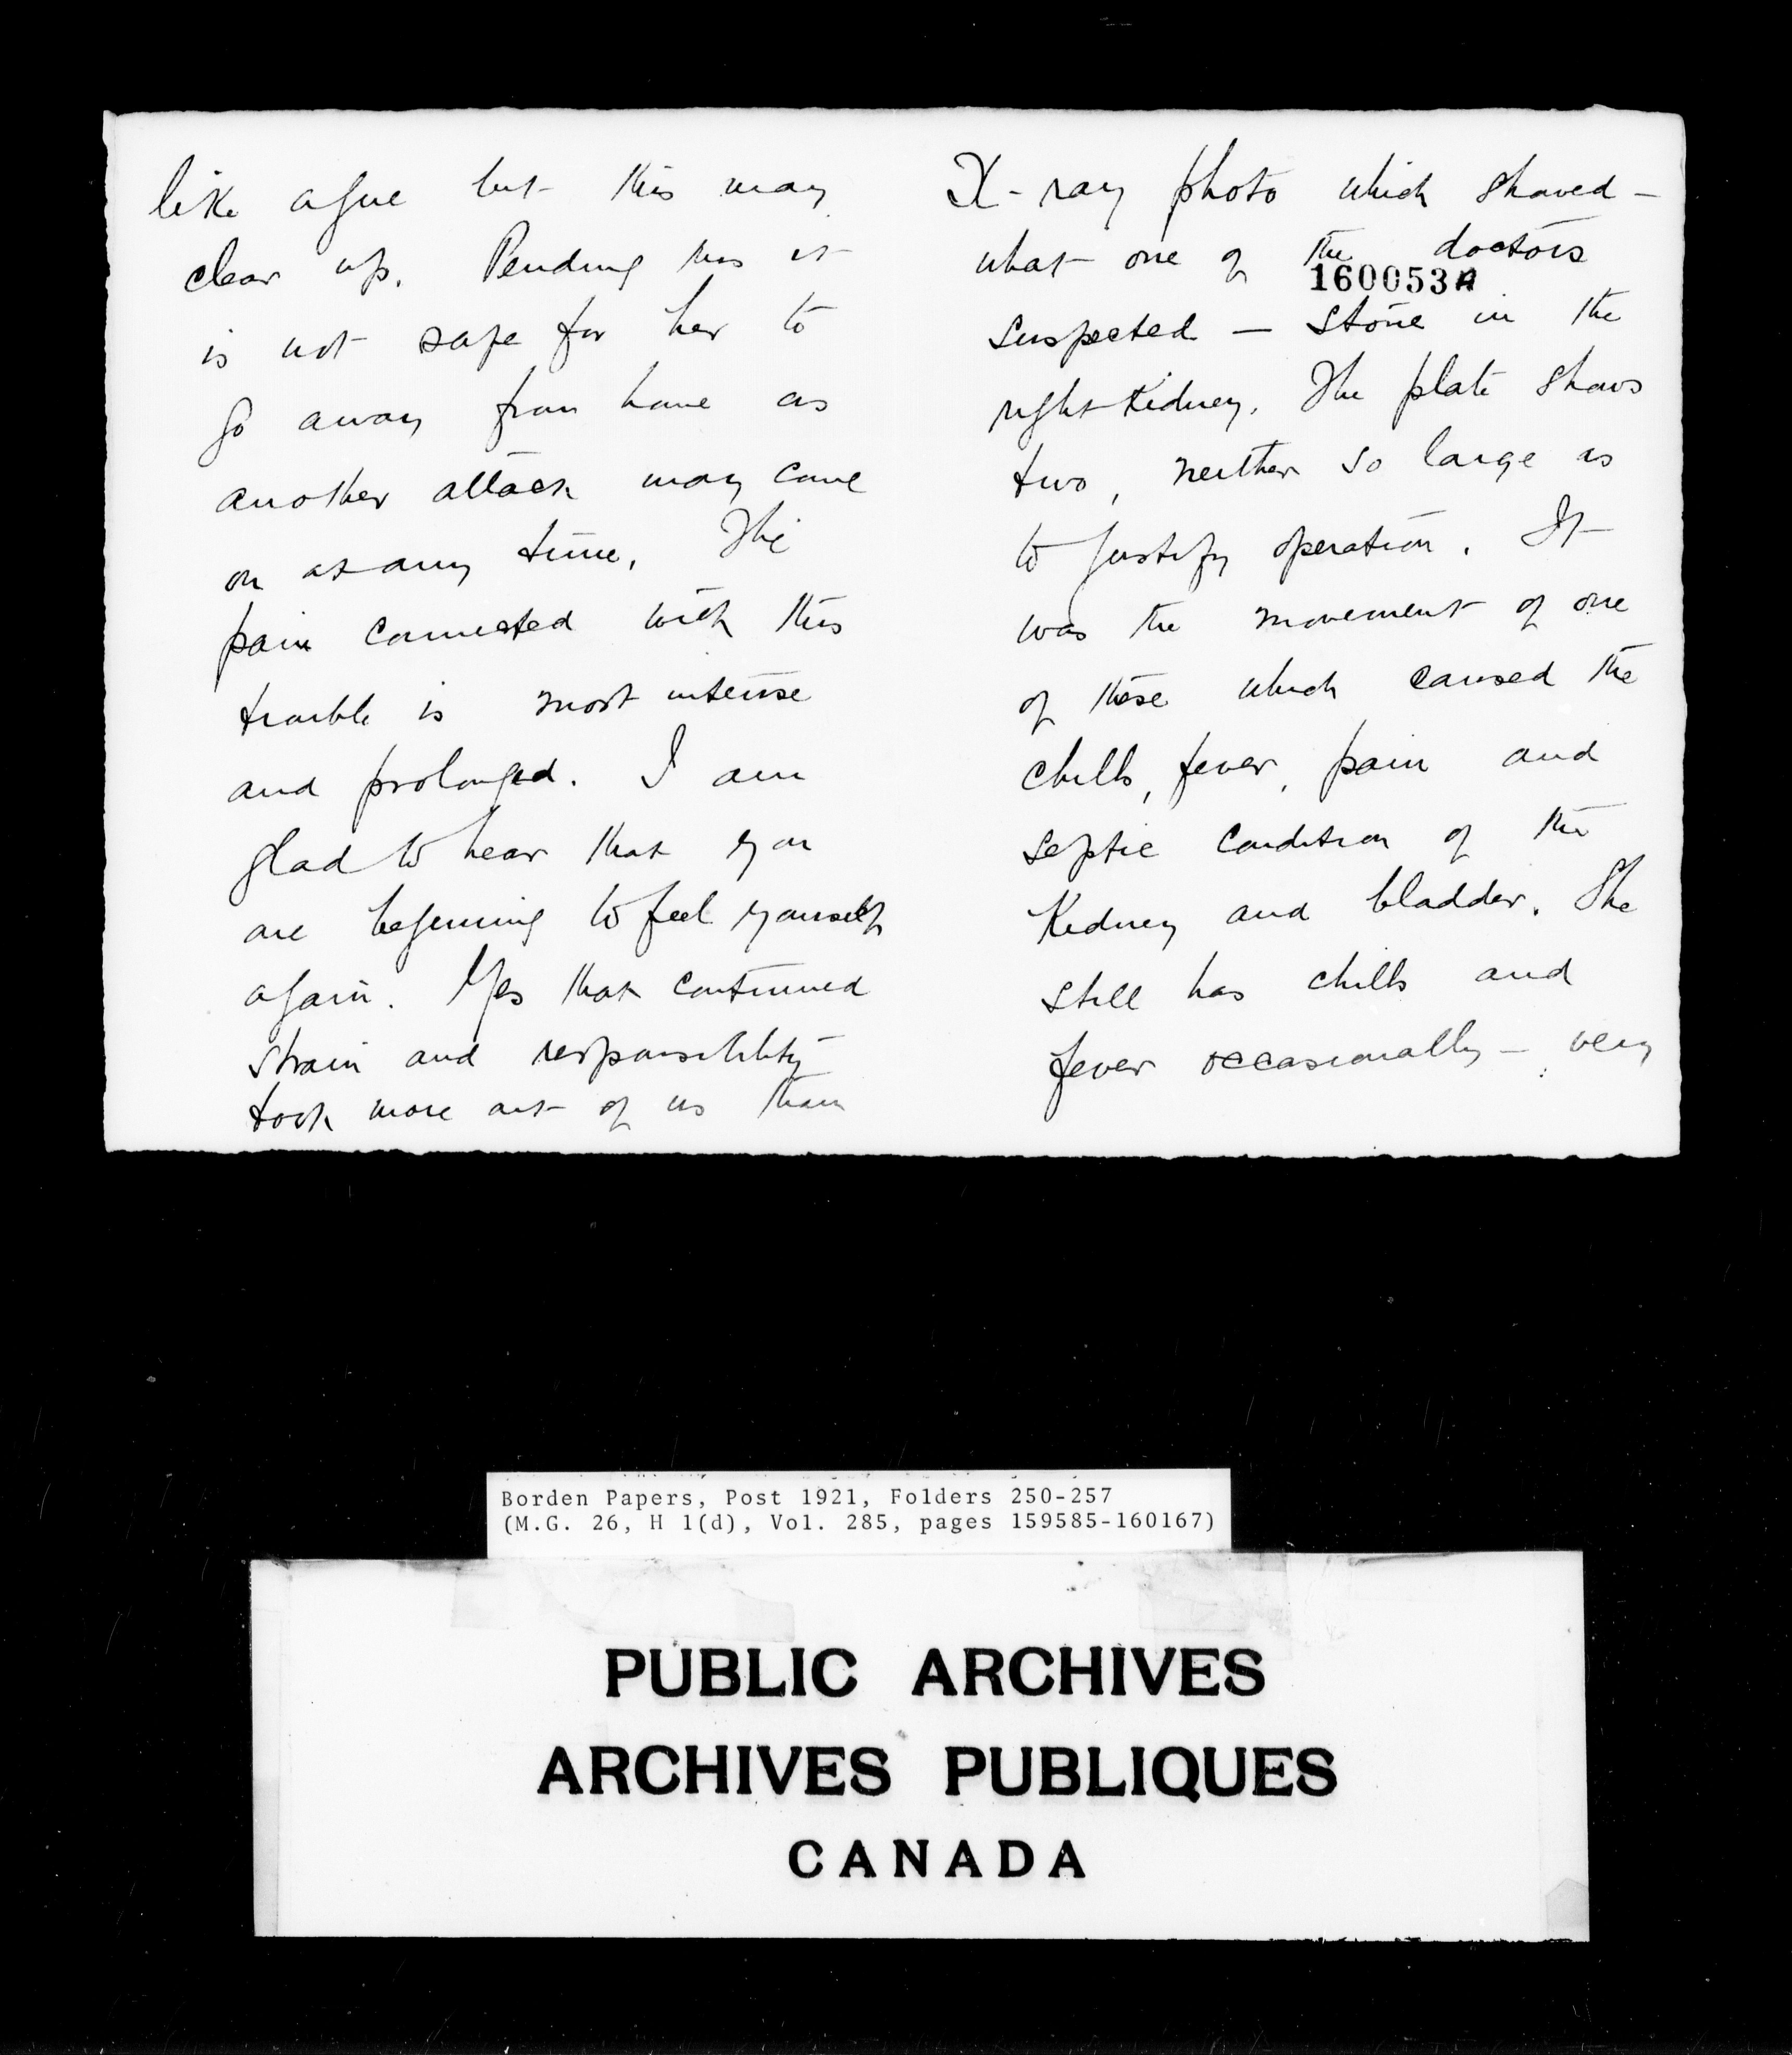 like ague but this may
clear up. Pending this it
is not safe for her to
go away from home as
another attack may come
on at any time. The
pain connected with this
trouble is most intense
and prolonged. I am
glad to hear that you
are beginning to feel yourself
again. Yes that continued
strain and responsibility
took more out of us than
X-ray photo which showed -
what one of the doctors
160053A
suspected — stone in the
right kidney. The plate shows
two, neither so large as
to justify operation. It
was the movement of one
of these which caused the
chills, fever, pain and
septic condition of the
Kidney and bladder. She
still has chills and
fever occasionally — very
Borden Papers, Post 1921, Folders 250-257
(M.G. 26, H 1(d), Vol. 285, pages 159585-160167)
PUBLIC ARCHIVES
ARCHIVES PUBLIQUES
CANADA